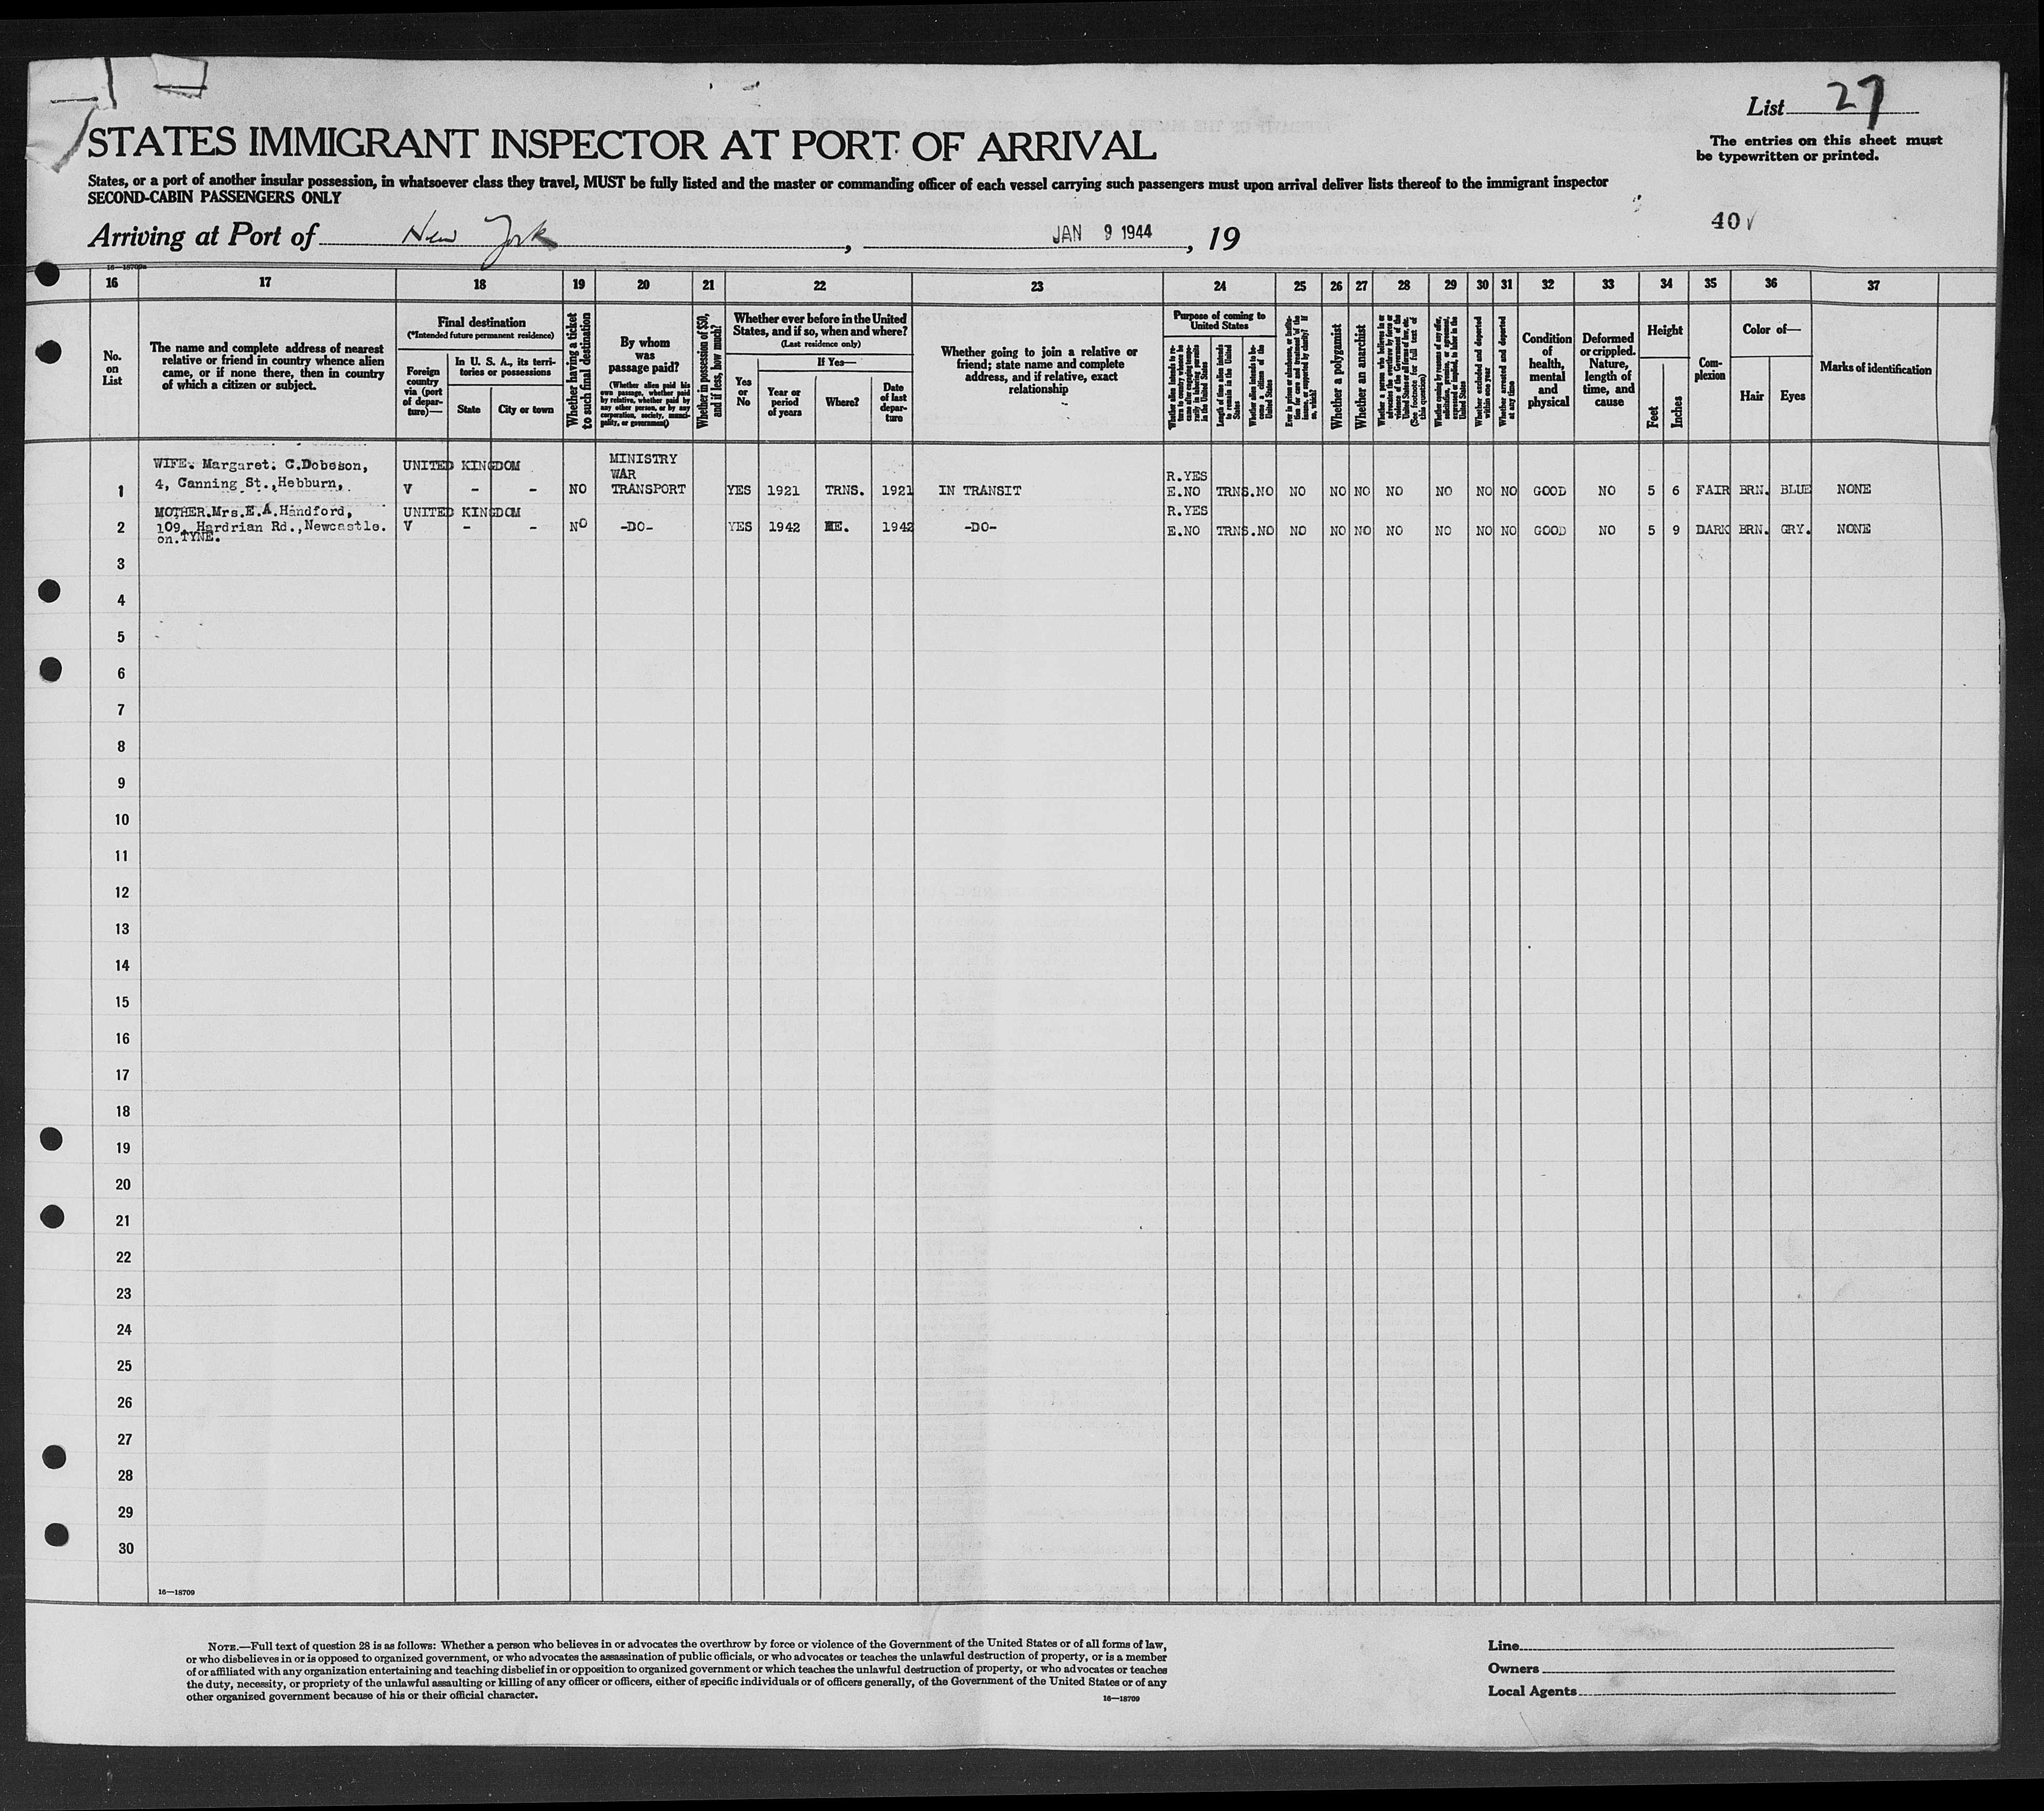 List 27
The entries on this sheet must
be typewritten or printed.
STATES IMMIGRANT INSPECTOR AT PORT OF ARRIVAL
States, or a port of another insular possession, in whatsoever class they travel, MUST be fully listed and the master or commanding officer of each vessel carrying such passengers must upon arrival deliver lists thereof to the immigrant inspector
SECOND-CABIN PASSENGERS ONLY
40
Arriving at Port of New York, JAN 9 1944, 19
16—18709a
16 17 18 19 20 21 22 23 24 25 26 27 28 29 30 31 32 33 34 35 36 37
No.
on
List
The name and complete address of nearest
relative or friend in country whence alien
came, or if none there, then in country
of which a citizen or subject.
Final destination
(*Intended future permanent residence)
Foreign
country
via (port
of depar-
ture)—
In U. S. A., its terri-
tories or possessions
State
City or town
Whether having a ticket
to such final destination
By whom
was
passage paid?
(Whether alien paid his
own passage, whether paid
by relative, whether paid by
any other person, or by any
corporation, society, munici-
pality, or government)
Whether in possession of $50,
and if less, how much?
Whether ever before in the United
States, and if so, when and where?
(Last residence only)
Yes
or
No
If Yes—
Year or
period
of years
Where?
Date
of last
depar-
ture
Whether going to join a relative or
friend; state name and complete
address, and if relative, exact
relationship
Purpose of coming to
United States
Whether alien intends to re-
turn to country whence he
came after engaging tempo-
rarily in laboring pursuits
in the United States
Length of time alien intends
to remain in the United
States
Whether alien intends to be-
come a citizen of the
United States
Whether a polygamist
Whether an anarchist
Whether excluded and deported
within one year
Whether arrested and deported
at any time
Condition
of
health,
mental
and
physical
Deformed
or crippled.
Nature,
length of
time, and
cause
Height
Feet
Inches
Com-
plexion
Color of—
Hair
Eyes
Marks of identification
WIFE. Margaret. C.Dobeson, UNITED KINGDOM MINISTRY
WAR R.YES
1 4, Canning St., Hebburn, V - - NO TRANSPORT YES 1921 TRNS. 1921 IN TRANSIT E.NO TRNS.NO NO NO NO NO NO NO NO GOOD NO 5 6 FAIR BRN. BLUE NONE
MOTHER.Mrs.E.A.Handford, UNITED KINGDOM R.YES
2 109, Hardrian Rd., Newcastle. V - - NO -DO- YES 1942 ME. 1942 -DO- E.NO TRNS.NO NO NO NO NO NO NO NO GOOD NO 5 9 DARK BRN. GRY. NONE
on.TYNE.
3
4
5
6
7
8
9
10
11
12
13
14
15
16
17
18
19
20
21
22
23
24
25
26
27
28
29
30
16—18709
NOTE.—Full text of question 28 is as follows: Whether a person who believes in or advocates the overthrow by force or violence of the Government of the United States or of all forms of law,
or who disbelieves in or is opposed to organized government, or who advocates the assassination of public officials, or who advocates or teaches the unlawful destruction of property, or is a member
of or affiliated with any organization entertaining and teaching disbelief in or opposition to organized government or which teaches the unlawful destruction of property, or who advocates or teaches
the duty, necessity, or propriety of the unlawful assaulting or killing of any officer or officers, either of specific individuals or of officers generally, of the Government of the United States or of any
other organized government because of his or their official character.
16—18709
Line
Owners
Local Agents